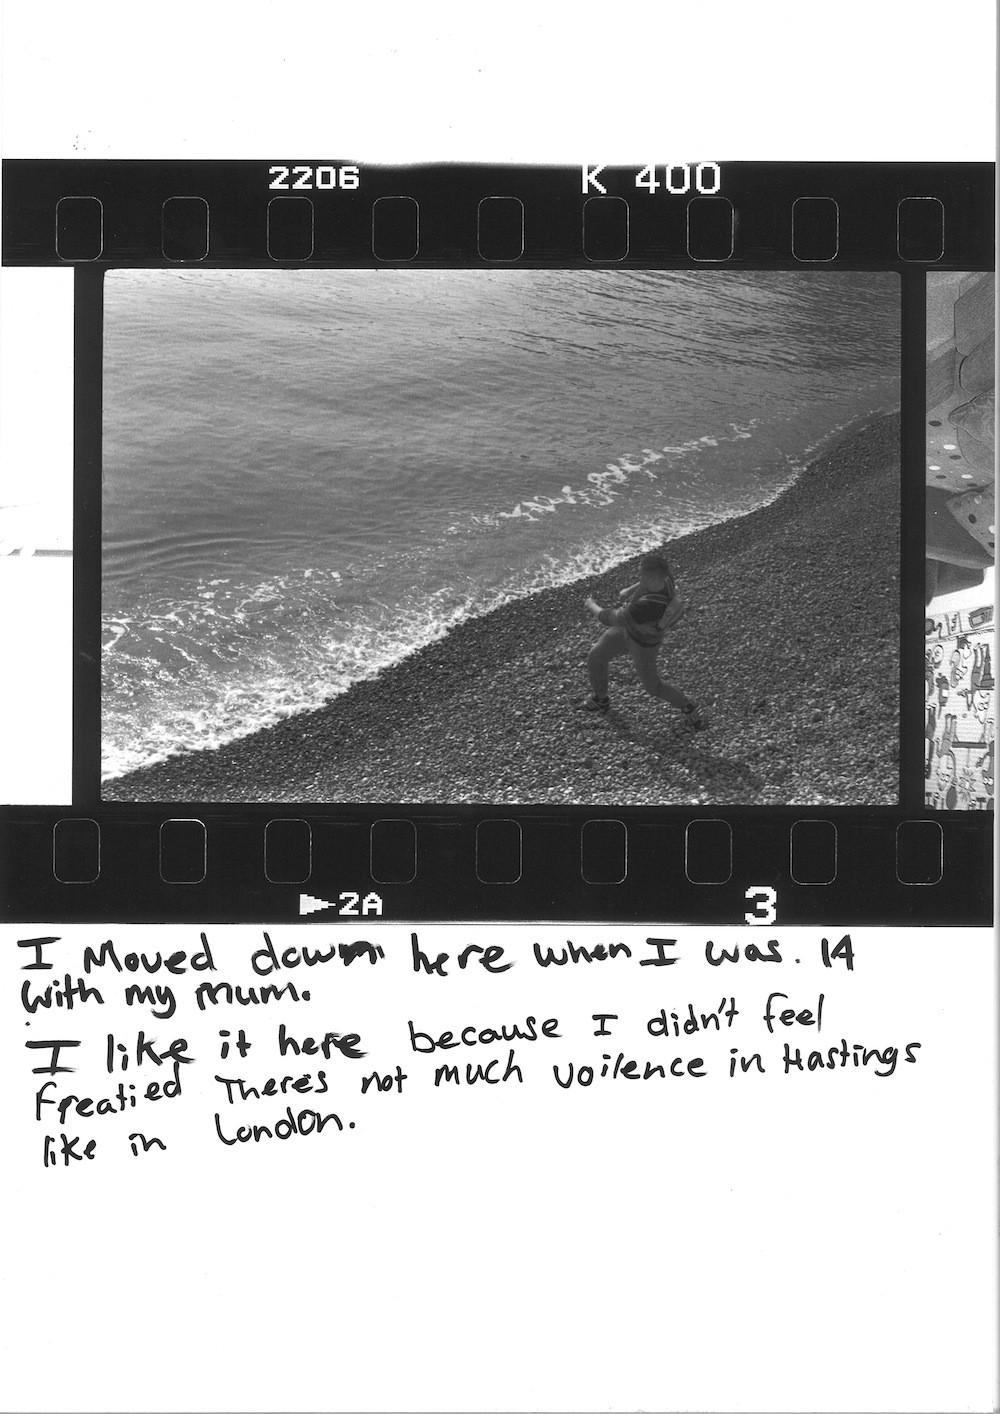 2206 K 400
▶2A 3
I Moved down here when I was. 14
with my mum.
I like it here because I didn't feel
freatied There's not much voilence in Hastings
like in London.